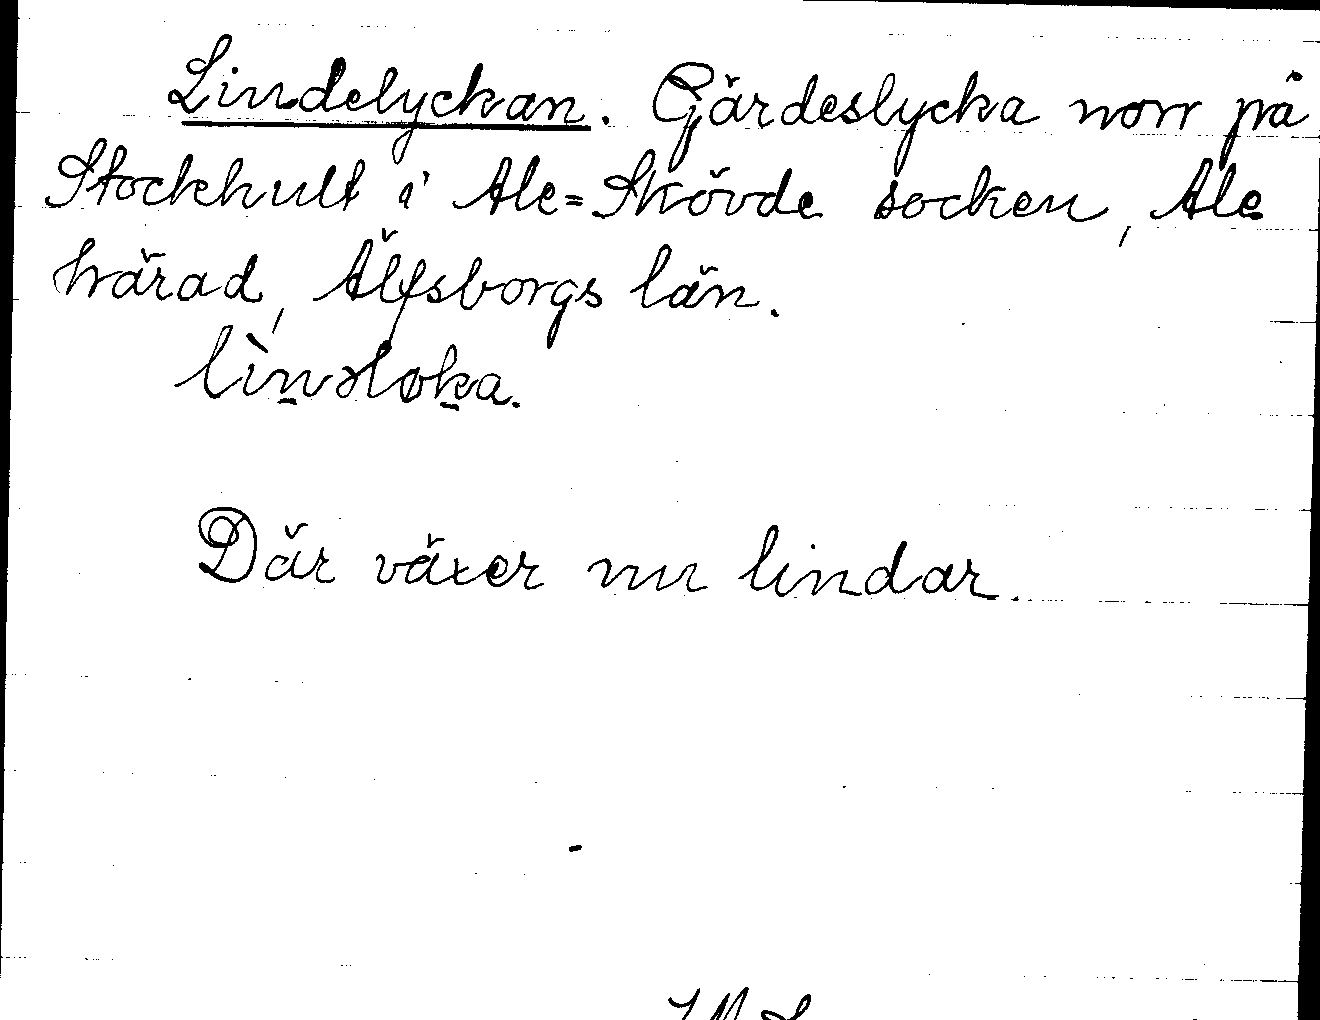 Lindelyckan. Gärdeslycka norr på
Stockhult i Ale=Skövde socken, Ale
härad, Älfsborgs län.
Där växer nu lindar.